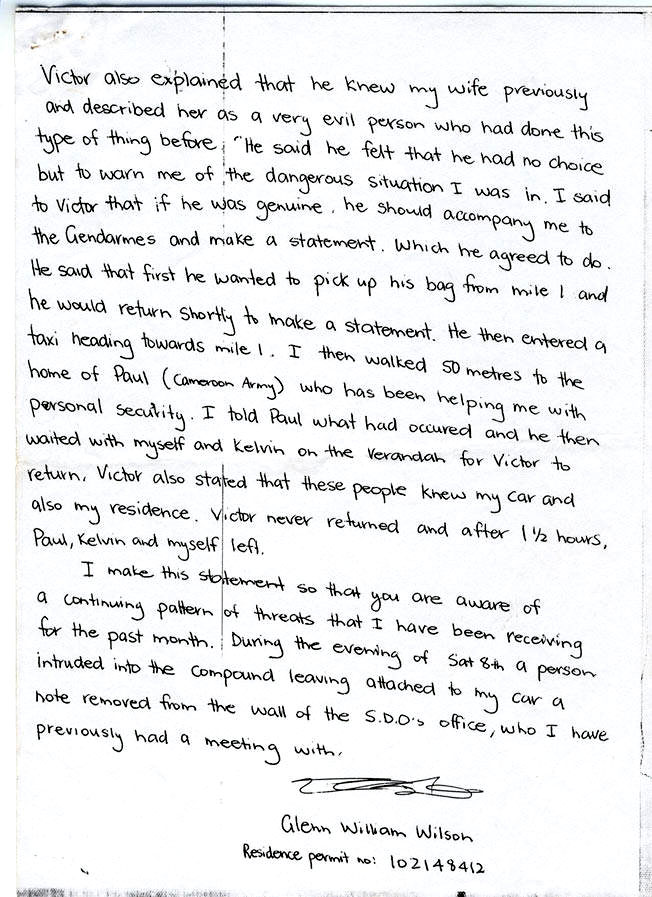 Victor also explained that he knew my wife previously
and described her as a very evil person who had done this
type of thing before, "He said he felt that he had no choice
but to warn me of the dangerous situation I was in. I said
to Victor that if he was genuine, he should accompany me to
the Gendarmes and make a statement. Which he agreed to do.
He said that first he wanted to pick up his bag from mile 1 and
he would return shortly to make a statement. He then entered a
taxi heading towards mile 1. I then walked 50 metres to the
home of Paul (Cameroon Army) who has been helping me with
personal security. I told Paul what had occured and he then
waited with myself and Kelvin on the verandah for Victor to
return. Victor also stated that these people knew my car and
also my residence. Victor never returned and after 1 1/2 hours,
Paul, Kelvin and myself left.
I make this statement so that you are aware of
a continuing pattern of threats that I have been receiving
for the past month. During the evening of Sat 8th a person
intruded into the compound leaving attached to my car a
note removed from the wall of the S.D.O's office, who I have
previously had a meeting with.
Glenn William Wilson
Residence permit no: 102148412